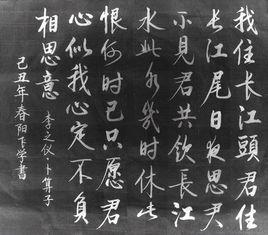 我住长江頭君住
长江尾日夜思君
不見君共飲長江
水此水幾时休此
恨何时已只愿君
心似我心定不負
相思意
李之仪·卜算子
己丑年春阳学書